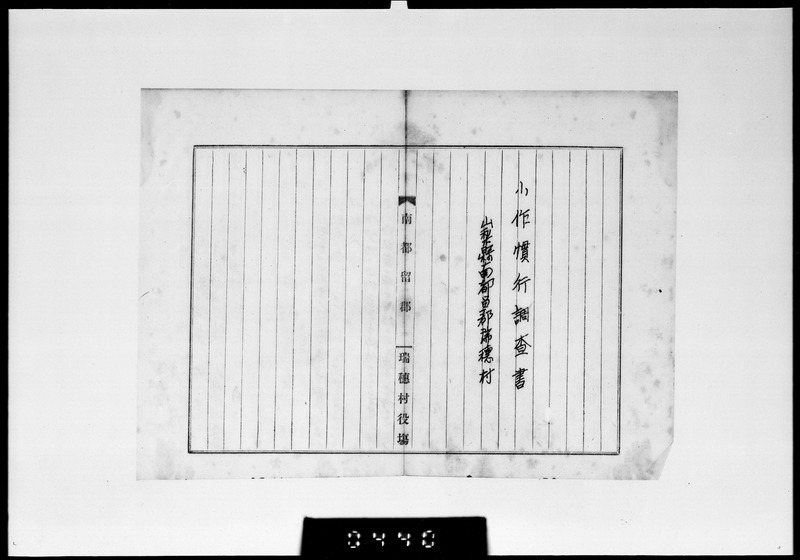 小作慣行調査書
山梨縣南都留郡瑞穂村
南都留郡
瑞穂村役場
0440